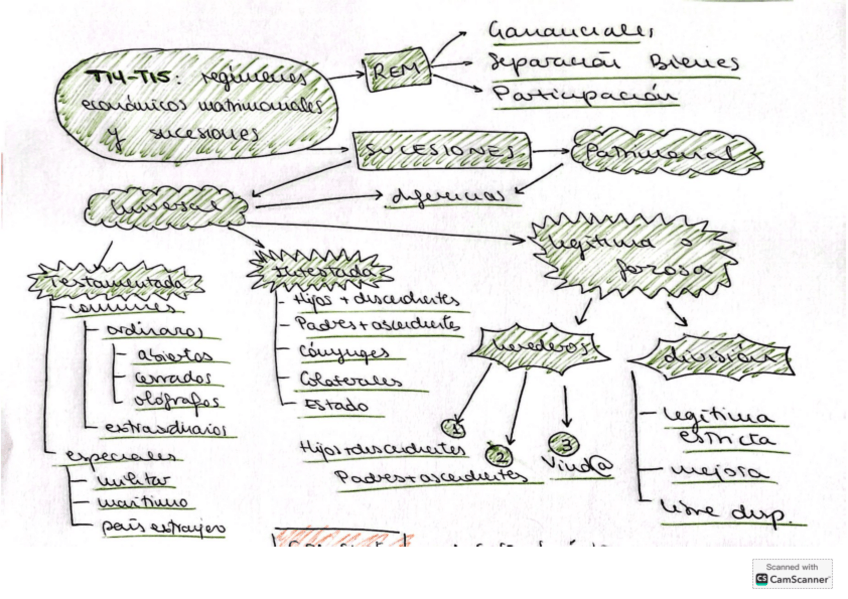 T14-T15: regímenes
económicos matrimoniales
y sucesiones
REM
Gananciales
Separación Bienes
Participación
SUCESIONES
Patrimonial
diferencias
Universal
legítima o
forzosa
Testamentada
comunes
ordinarios
abiertos
cerrados
ológrafos
extraordinarios
especiales
militar
marítimo
país extranjero
Intestada
Hijos + descendientes
Padres + ascendientes
Cónyuges
Colaterales
Estado
herederos
1
Hijos + descendientes
2
Padres + ascendientes
3
Viud@
división
legítima
estricta
mejora
libre disp.
Scanned with
CS CamScanner